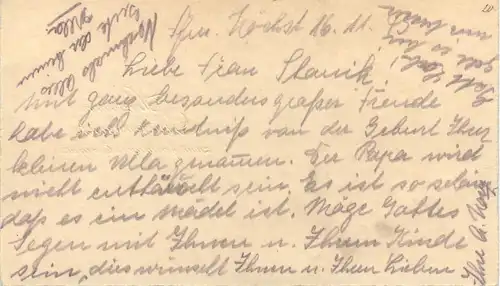 Höchst 16. 11.
Liebe Frau Stanik!
Mit ganz besonders großer Freude
habe ich Kenntniß von der Geburt Ihrer
kleinen Ulla genommen. Der Papa wird
nicht enttäuscht sein. Es ist so schön
daß es ein Mädel ist. Möge Gottes
Segen mit Ihnen u. Ihrem Kinde
sein, dies wünscht Ihnen u. Ihren Lieben
Ihre A.
Nochmals alles
Gute der kleinen
Ulla
20